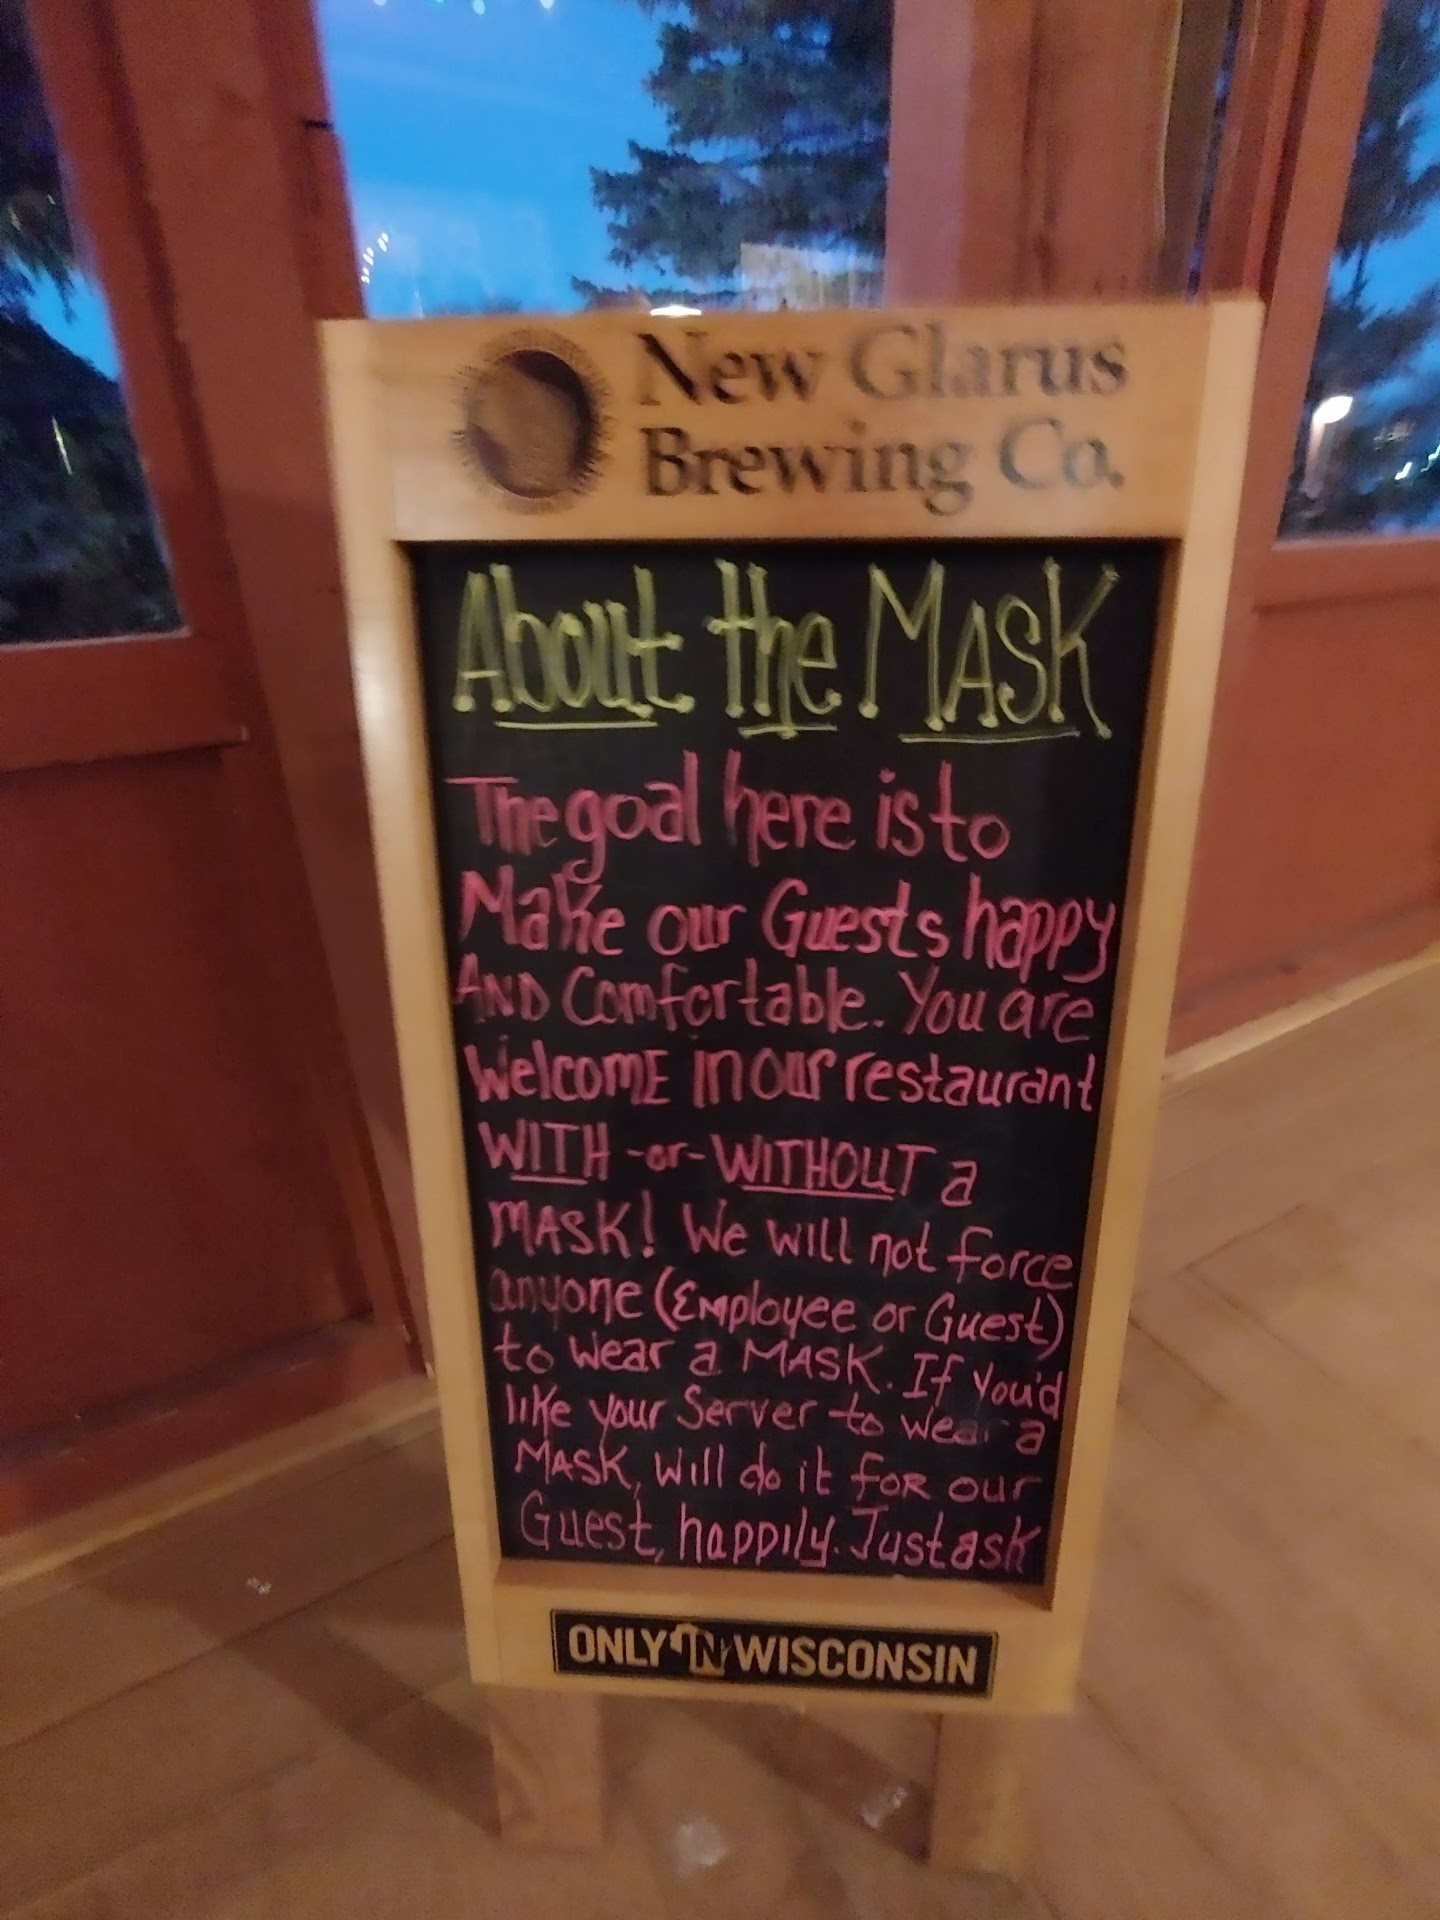 New Glarus
Brewing Co.
About the MASK
The goal here is to
Make our Guests happy
AND Comfortable. You are
WelcomE IN our restaurant
WITH -or- WITHOUT a
MASK! We will not force
anyone (Employee or Guest)
to wear a MASK. If you'd
like your Server to wear a
MASK, will do it for our
Guest, happily. Just ask
ONLY IN WISCONSIN